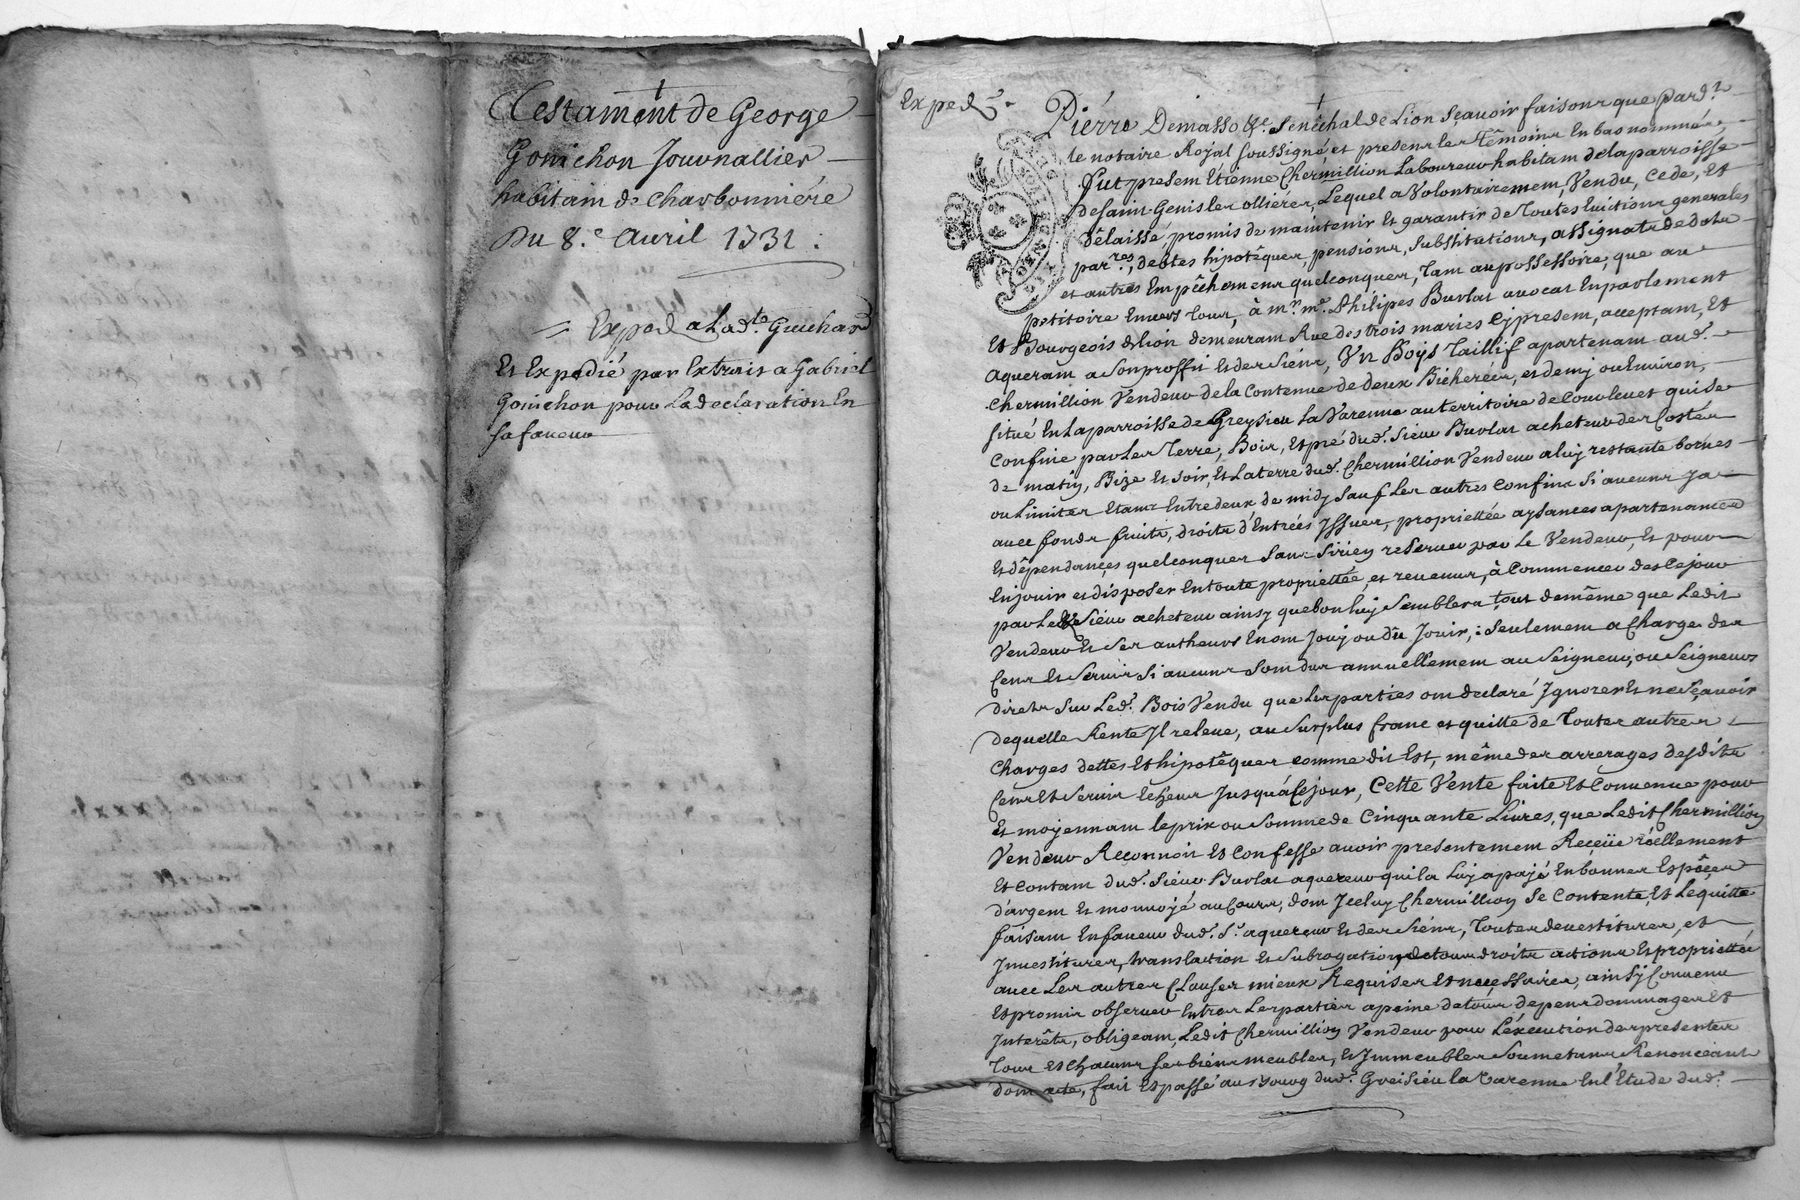 Testament de George
Gonichon Journallier
habitam de Charbonniére
Du 8.e Auril 1731 :
= Exped a Lad.te Guichard
Et Expedié par Extrait a Gabriel
Gonichon pour La declaration En
sa faueur
Exped.
Pierre Demasso &c. Senêchal de Lion Scauoir faisons que Pard.t
le notaire Royal soussigné et presens les Têmoins En bas nommés,
fut presem Etienne Chermillion Laboureur habitam de la parroisse
de saint Genis les ollières, Lequel a Volontairemem, Vendu, Cede, Et
dêlaissé, promis de maintenir Et garantir de Toutes Euictions generales
par.res, debtes hipotêques, pensions, substitutions, assignats de dots
et autres Empêchemens quelconques, Tam au possessoire, que au
petitoire Enuers Tous, à m.r m.e Philipes Burlat auocat En parlement
Et Bourgeois de Lion demeuram Rue des trois maries Cy presem, acceptam, Et
aqueram a Son proffit Et des Siens, Un Boys Taillif apartenam aud.
Chermillion Vendeur de la Contenue de deux Bicherées, et demy ou Enuiron,
situé En La parroisse de Greysieu La Varenne au territoire de Couleuet qui Se
Confine par Les Terre, Bois, Et pré dud. Sieur Burlat acheteur des Costés
de matin, Bize Et soir, Et La terre dud. Chermillion Vendeur a luy restante bornes
ou Limites Etans Entredeux de midy Sauf Les autres Confins Si aucuns y a
auec fonds fruits, droits d'Entrées Yssues, propriettée aysances apartenances
Et dêpendances quelconques Sans Si rien reseruer par Le Vendeur, Et pour
En jouir et disposer En toute propriettée, et reuenus, à Commencer des Ce jour
par Led. Sieur acheteur ainsy que bon luy Semblera tout de même que Ledit
Vendeur Et Ses autheurs En om Jouy ou dû Jouir, : Seulemem a Charge des
Cens Et Seruis Si aucuns Som dus annuellemem au Seigneur, ou Seigneurs
directs Sur Led. Bois Vendu que Les parties om declaré Ignorer Et ne Sçauoir
de quelle Rente Il releue, au Surplus franc et quitte de Toutes autres
Charges dettes Et hipotêques comme dit Est, même des arrerages desdits
Cens Et Seruis Echeus Jusqu'à Ce jour, Cette Vente faite Et Conuenue pour
Et moyennam le prix ou Somme de Cinquante Liures, que Ledit Chermillion
Vendeur Reconnoit Et Confesse auoir presentemem Receüe réellement
Et contam dud. Sieur Burlat aquereur qui la Luy a payé En bonnes Espêces
d'argem Et monnoyé au Cours, dom Jceluy Chermillion Se Contente, Et Le quitte
faisam En faueur dud. S.r aquereur Et des Siens, Toutes deuestitures, et
Inuestitures, translation Et Subrogation, de tous droits actions Et propriettée
auec Les autres Clauses mieux Requises Et necessaires, ainsy Conuenu
Et promis obseruer Entres Les parties a peine de tous depens dommages Et
Interêts, obligeam, Ledit Chermillion Vendeur pour L'éxecution des presentes
Tous Et Chacuns Ses biéns meubles, Et Jmmeubles Soumetans Renonceant
dom acte, fait Et passé au Bourg dud. Greisieu la Varenne En l'Etude dud.